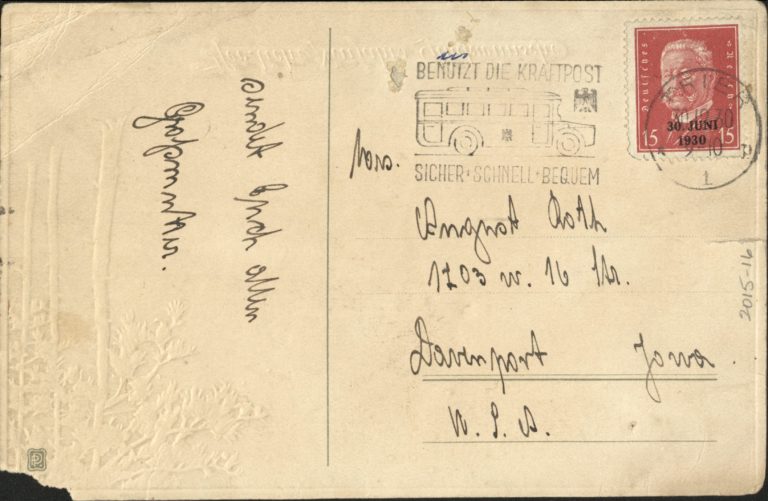 BENUTZT DIE KRAFTPOST
SICHER + SCHNELL + BEQUEM
Deutsches Reich
30. JUNI
1930
15 15
TRIER
1
sendet Euch allen
Großmutter.
Mrs.
August Roth
1703 W. 16 Str.
Davenport Iowa
U. S. A.
2015-16